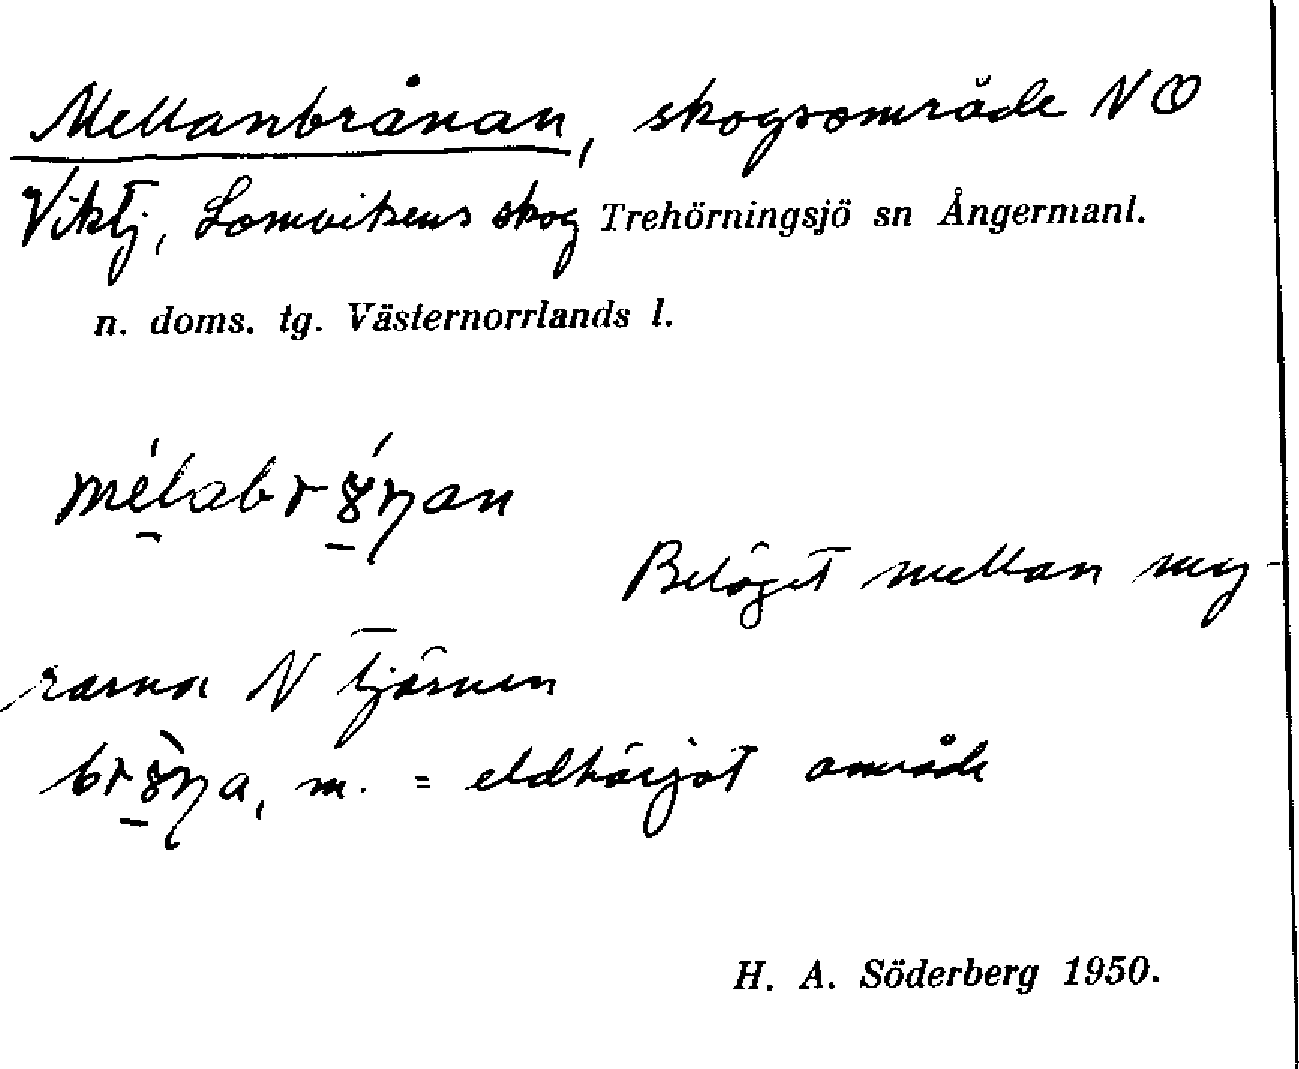 Mellanbrånan, skogsområde NO
Viktj, Lomvikens skog Trehörningsjö sn Ångermanl.
n. doms. tg. Västernorrlands l.
Beläget mellan my-
rarna N tjärnen
m. = eldhärjat område
H. A. Söderberg 1950.